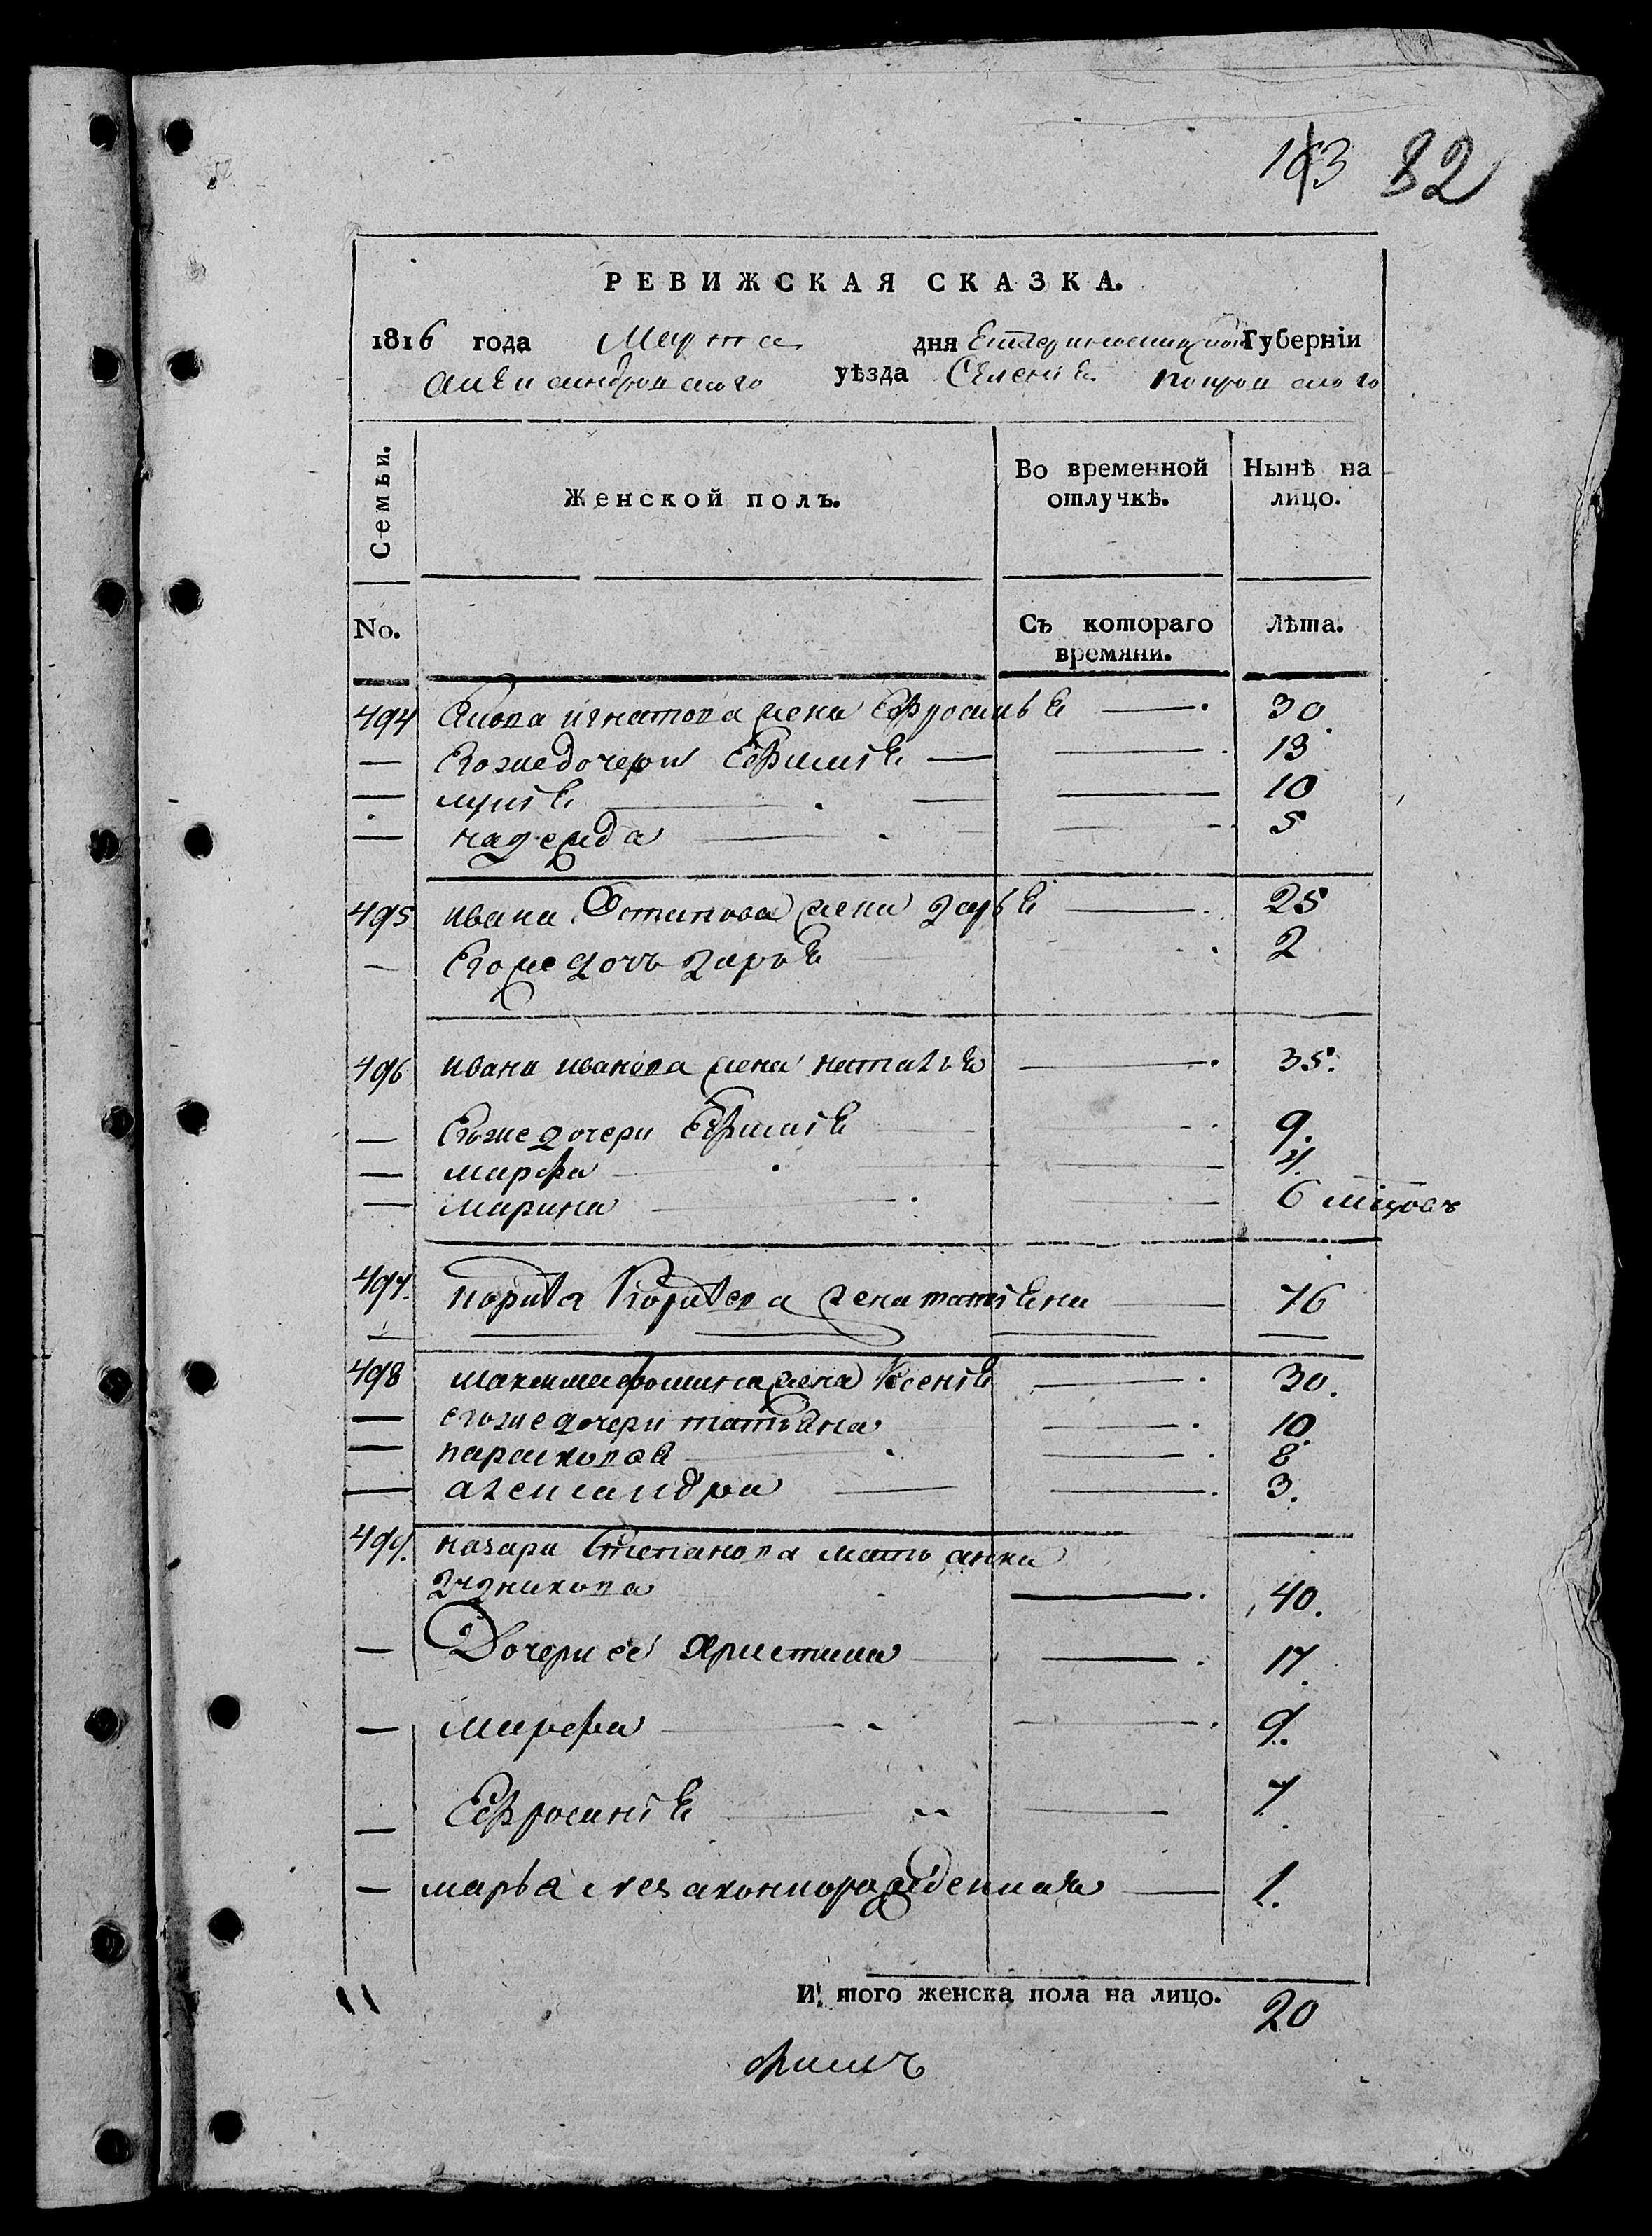 163 82
РЕВИЖСКАЯ СКАЗКА.
1816 года Марта дня Екатеринославской Губернїи
Александровского уѣзда Селенія Покровского
Семьи. Женской полъ. Во временной отлучкѣ. Нынѣ на лицо.
No. Съ котораго времяни. Лѣта.
494 Якова игнатова жена Ефросинья 30
— Егоже дочери Ефимія 13
— лукія 10
— надежда 5
495 ивана Остапова жена дарья 25
— Егоже дочь дарья 2
496 ивана иванова жена наталья 35.
— Егоже дочери Ефимія 9.
— марфа 4.
— марина 6 мѣцовъ
497. Кориѣя жена татіяна 76
498 максима фомина жена Ксенія 30.
— егоже дочери татьяна 10
— парасковѣя 8
— александра 3.
499. назара Степанова мать анна
40.
— Дочери ее христина 17.
— марфа 9.
— Ефросинія 7.
— марья незаконнорожденная 1.
И того женска пола на лицо. 20